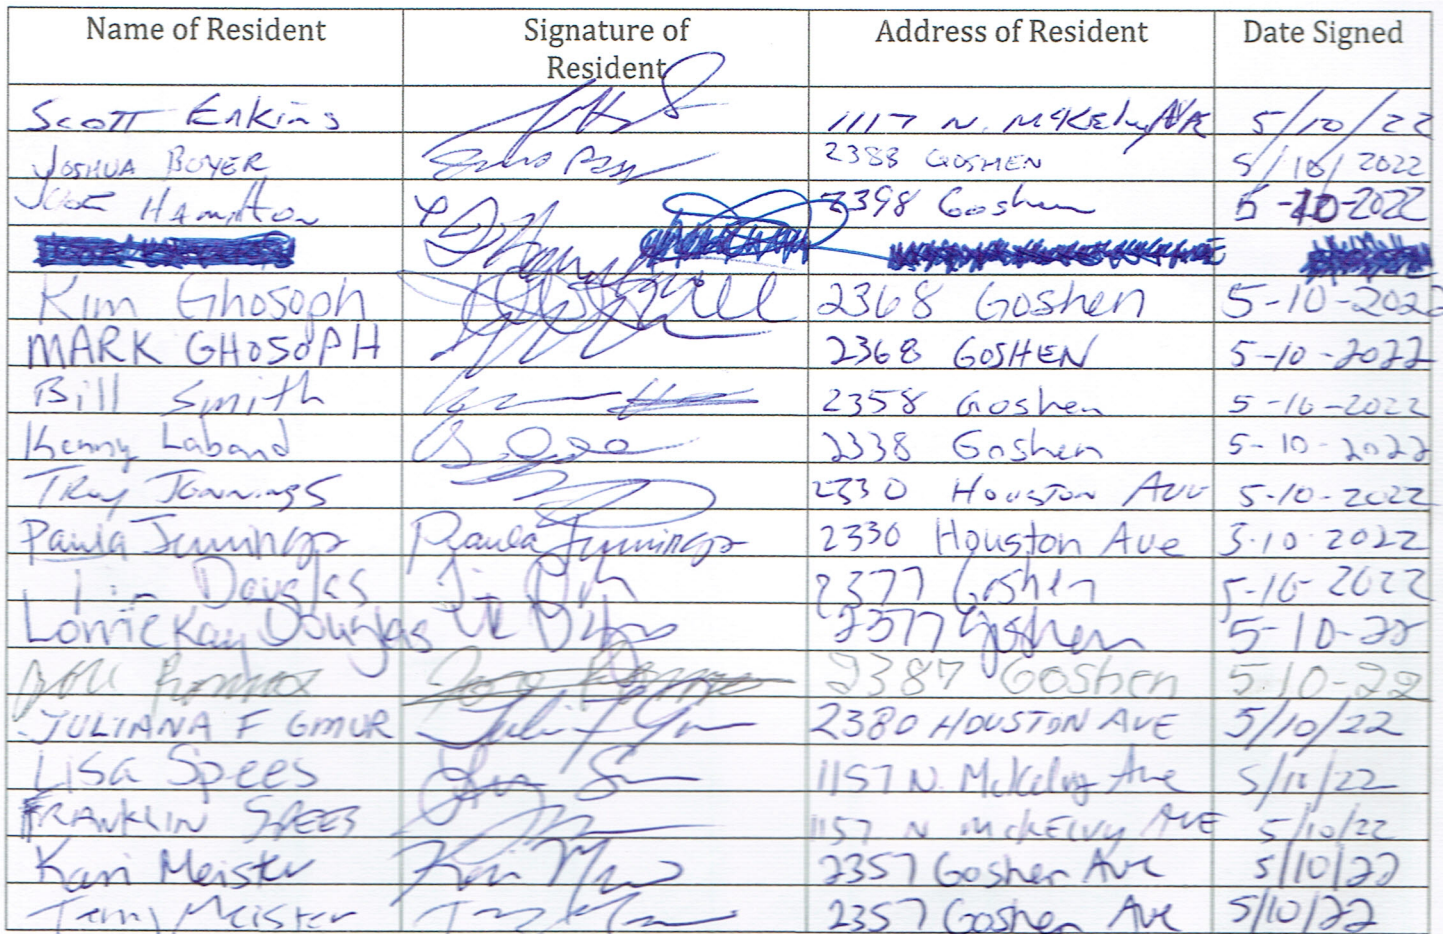 Name of Resident Signature of Resident Address of Resident Date Signed
Scott Enkins 1117 N. McKelvy Ave 5/10/22
Joshua Boyer 2388 Goshen 5/10/2022
Hamilton 2398 Goshen 5-10-2022
Kim Ghosoph 2368 Goshen 5-10-2022
MARK GHOSOPH 2368 GOSHEN 5-10-2022
Bill Smith 2358 Goshen 5-10-2022
Kenny Laband 2338 Goshen 5-10-2022
Troy Jennings 2330 Houston Ave 5-10-2022
Paula Jennings Paula Jennings 2330 Houston Ave 5-10-2022
Douglas 2377 Goshen 5-10-2022
Lorrie Kay Douglas 2377 Goshen 5-10-22
2387 Goshen 5-10-22
JULIANA F GMUR 2380 HOUSTON AVE 5/10/22
Lisa Spees 1157 N. McKelvy Ave 5/10/22
FRANKLIN SPEES 1157 N McKELVY AVE 5/10/22
Kari Meister 2357 Goshen Ave 5/10/22
Terry Meister 2357 Goshen Ave 5/10/22